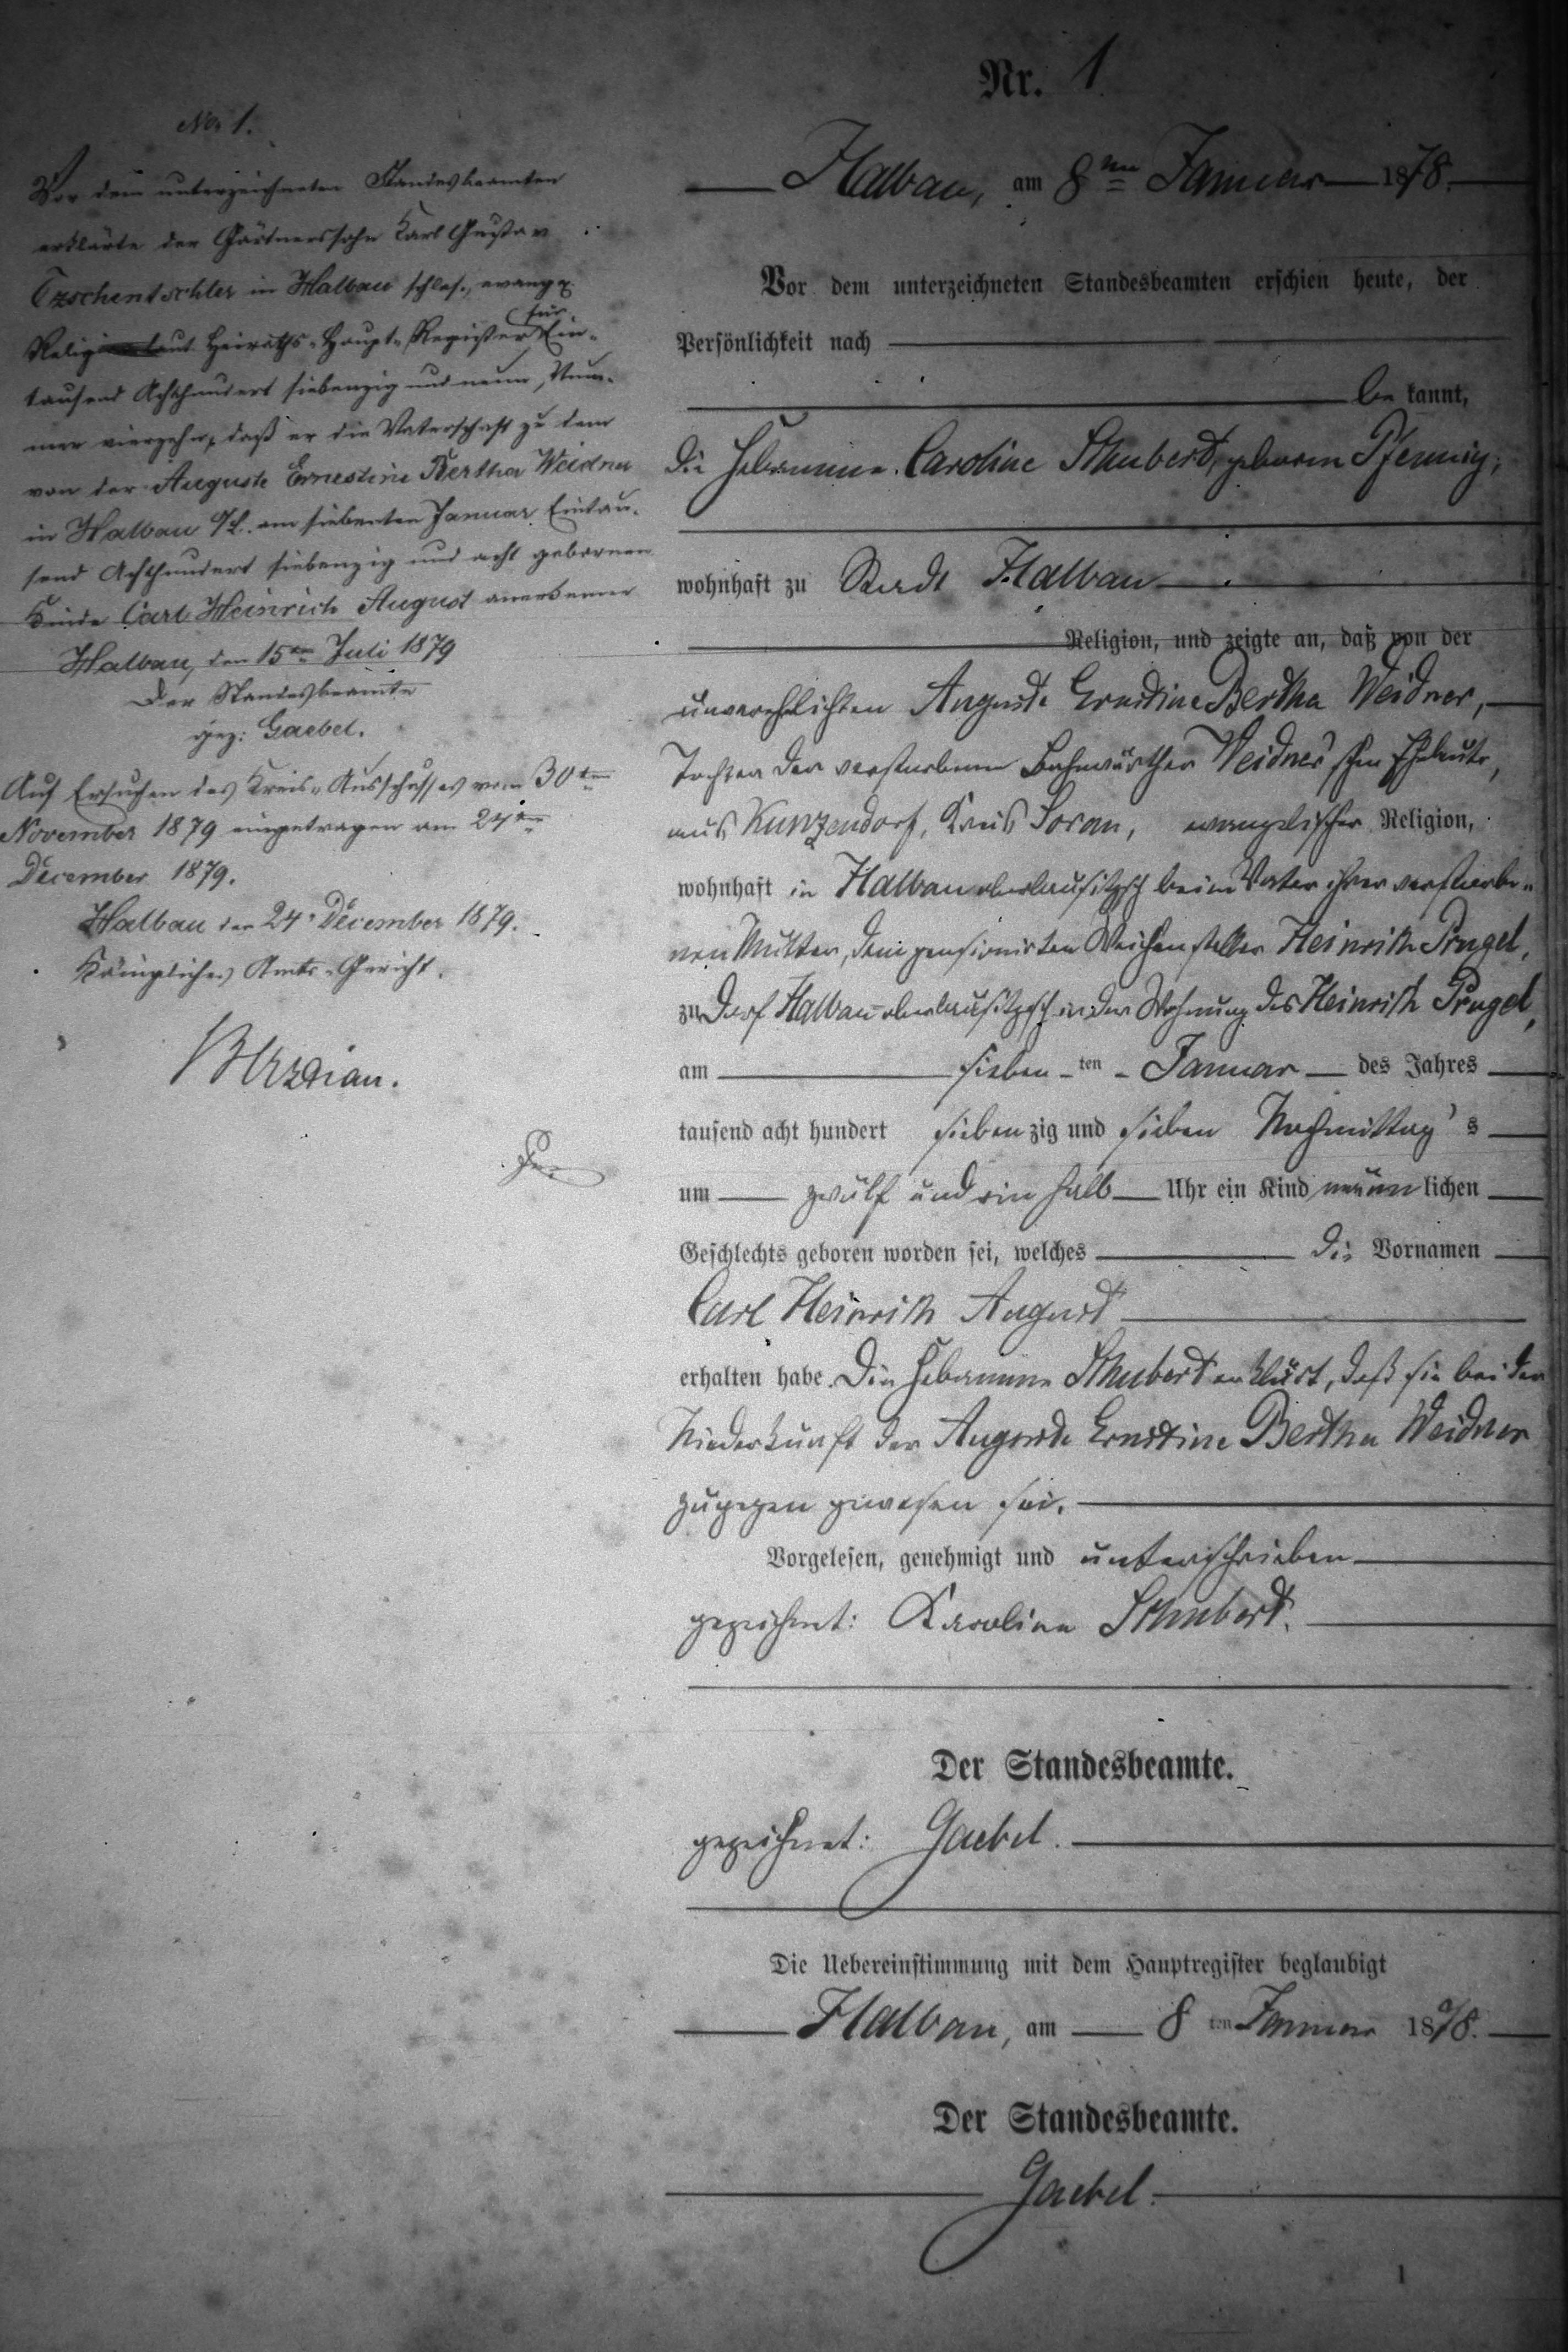 No 1.
Vor dem unterzeichneten Standesbeamten
erklärte der Gärtnerssohn Karl Gustav
Tzschentschler in Halbau schles., evang.
Relig laut Heiraths-Haupt-Register für Ein-
tausend Achthundert siebenzig und neun, Num-
mer vierzehn, daß er die Vaterschaft zu dem
von der Auguste Ernestine Bertha Weidner
in Halbau O/L. am siebenten Januar Eintau-
send Achthundert siebenzig und acht gebornen
Kinde Carl Heinrich August anerkenne
Halbau, den 15ten Juli 1879
Der Standesbeamte
gez: Gaebel.
Auf Ersuchen des Kreis-Ausschusses vom 30ten
November 1879 eingetragen am 24ten
December 1879.
Halbau den 24. December 1879.
Königliches Amts-Gericht.
Nr. 1
Halbau, am 8ten Januar 1878.
Vor dem unterzeichneten Standesbeamten erschien heute, der
Persönlichkeit nach
be kannt,
die Hebamme Caroline Schubert, geborne Pfennig,
wohnhaft zu Stadt Halbau
Religion, und zeigte an, daß von der
unverehelichten Auguste Ernestine Bertha Weidner,
Tochter der verstorbenen Bahnwärther Weidner'schen Eheleute,
aus Kunzendorf, Kreis Sorau, evangelischer Religion,
wohnhaft in Halbau oberlausitzsch beim Vater ihrer verstorbe-
nen Mutter, dem pensionirten Weichensteller Heinrich Prugel,
zu Dorf Halbau-oberlausitzsch in der Wohnung des Heinrich Prugel,
am sieben ten Januar des Jahres
tausend acht hundert sieben zig und sieben Nachmittag's
um zwölf und ein halb Uhr ein Kind männ lichen
Geschlechts geboren worden sei, welches die Vornamen
Carl Heinrich August
erhalten habe. Die Hebamme Schubert erklärt, daß sie bei der
Niederkunft der Auguste Ernestine Bertha Weidner
zugegen gewesen sei.
Vorgelesen, genehmigt und unterschrieben
gezeichnet: Karoline Schubert.
Der Standesbeamte.
gezeichnet: Gaebel.
Die Uebereinstimmung mit dem Hauptregister beglaubigt
Halbau, am 8 ten Januar 1878.
Der Standesbeamte.
Gaebel.
1